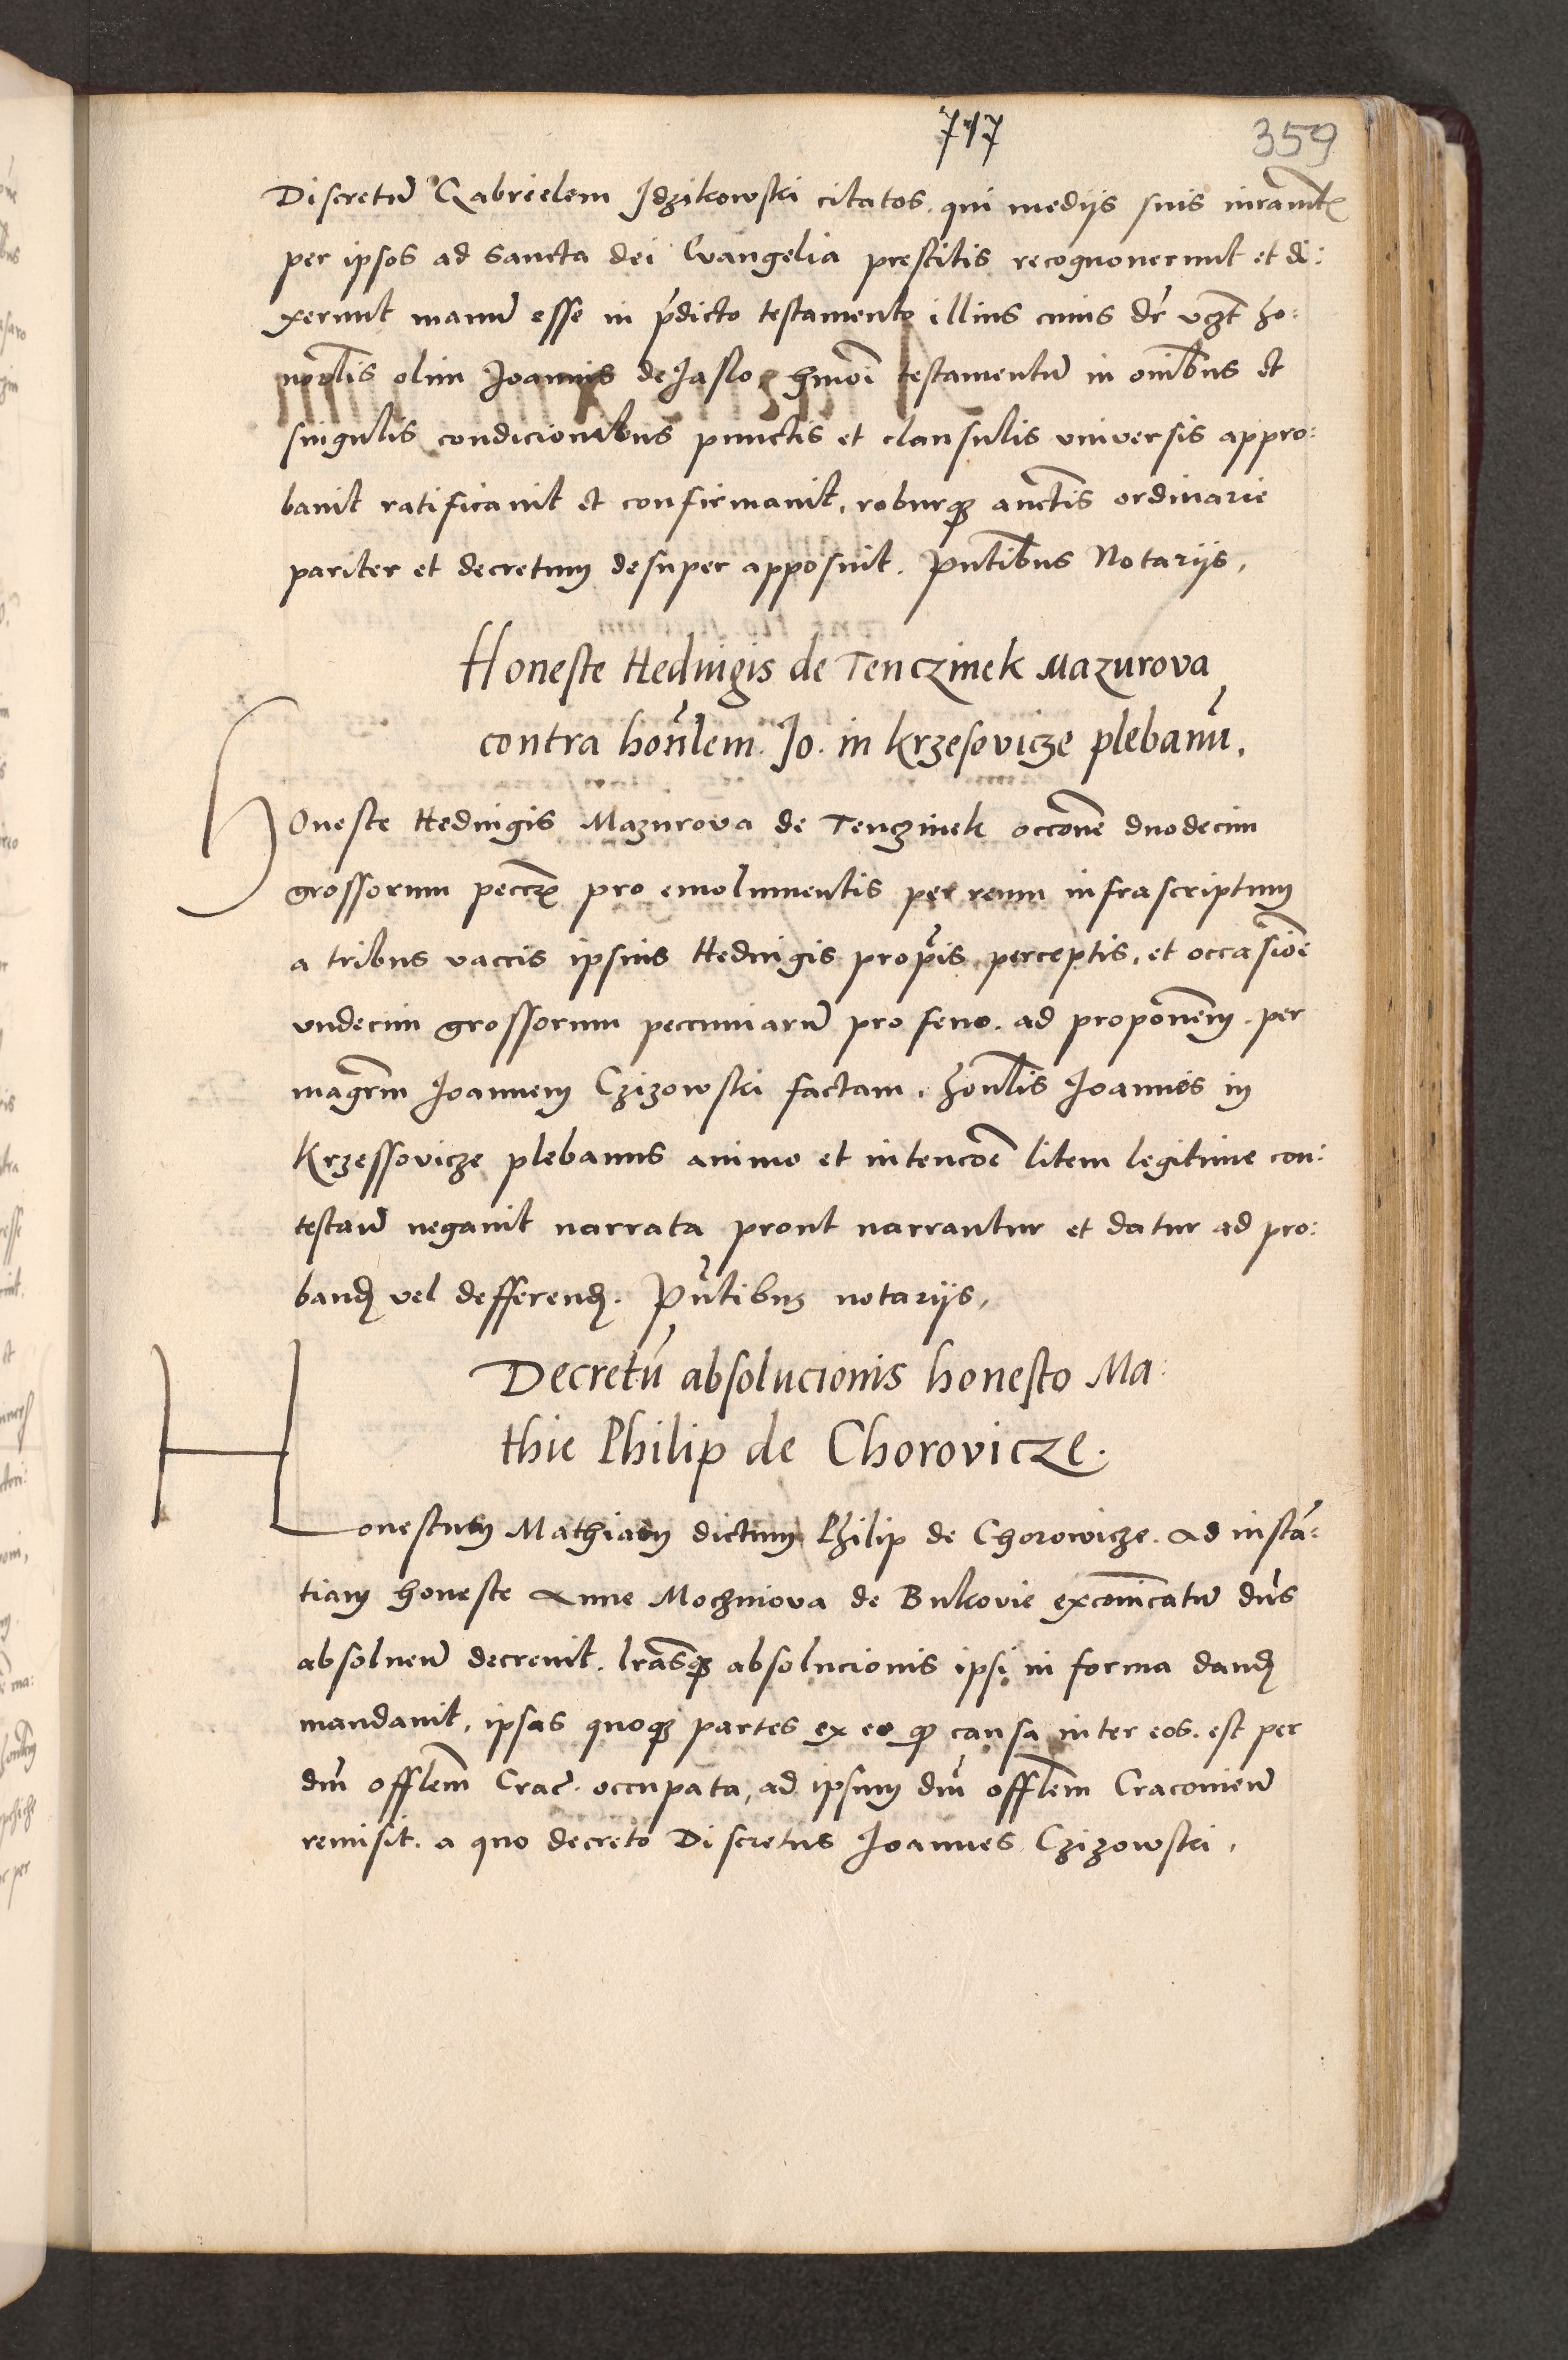 717
359
Discretu̅ Gabrielem Jdzikowski citatos. qui medijs suis iurame̅t
per ipsos ad sancta dei Evangelia prestitis recognouerunt et di:
xerunt manu̅ esse in p̅dicto testamento illius cuius dr̅ vgt̅ ho:
norlis̅ olim Joannis de Jaslo, hmoi̅ testamentu̅ in om̅ibus et
singulis condicionibus punctis et clausulis vniversis appro:
bauit ratificauit et confirmauit, roburqꝫ auctis̅ ordinarie
pariter et decretum desuper apposuit. Pn̅tibus Notarijs,
Honeste Hedvigis de Tenczinek Mazurova
contra hon̅lem. Jo. in Krzesovicze plebanu̅.
Honeste Hedvigis Mazurova de Tenczinek occone̅ duodecim
grossorum pecc̅ pro emolumentis per reum infrascriptum
a tribus vaccis ipsius Hedvigis prop̅is perceptis, et occasio̅e
vndecim grossorum peccuniaru̅ pro feno. ad propone̅m. per
magr̅m Joannem Czizowski factam. hon̅lis Joannes in
Krzessovicze plebanus animo et intenco̅e litem legitime con:
testan̅ negauit narrata prout narrantur et datur ad pro:
band vel defferend. Pn̅tibus notarijs,
Decretu̅ absolucionis honesto Ma:
thie Philip de Chorovicze.
Honestum Mathiam dictum Philip de Chorowicze. ad insta̅:
tiam honeste Anne Mochniova de Bukovie excom̅icatu̅ dn̅s
absoluen̅ decreuit. lr̅asqꝫ absolucionis ipsi in forma dand
mandauit, ipsas quoqꝫ partes ex eo ꝙ causa inter eos. est per
dn̅ offlem̅ Crac̅. occupata, ad ipsum dn̅ offlem̅ Cracouien̅
remisit. a quo decreto Discretus Joannes Czizowski,